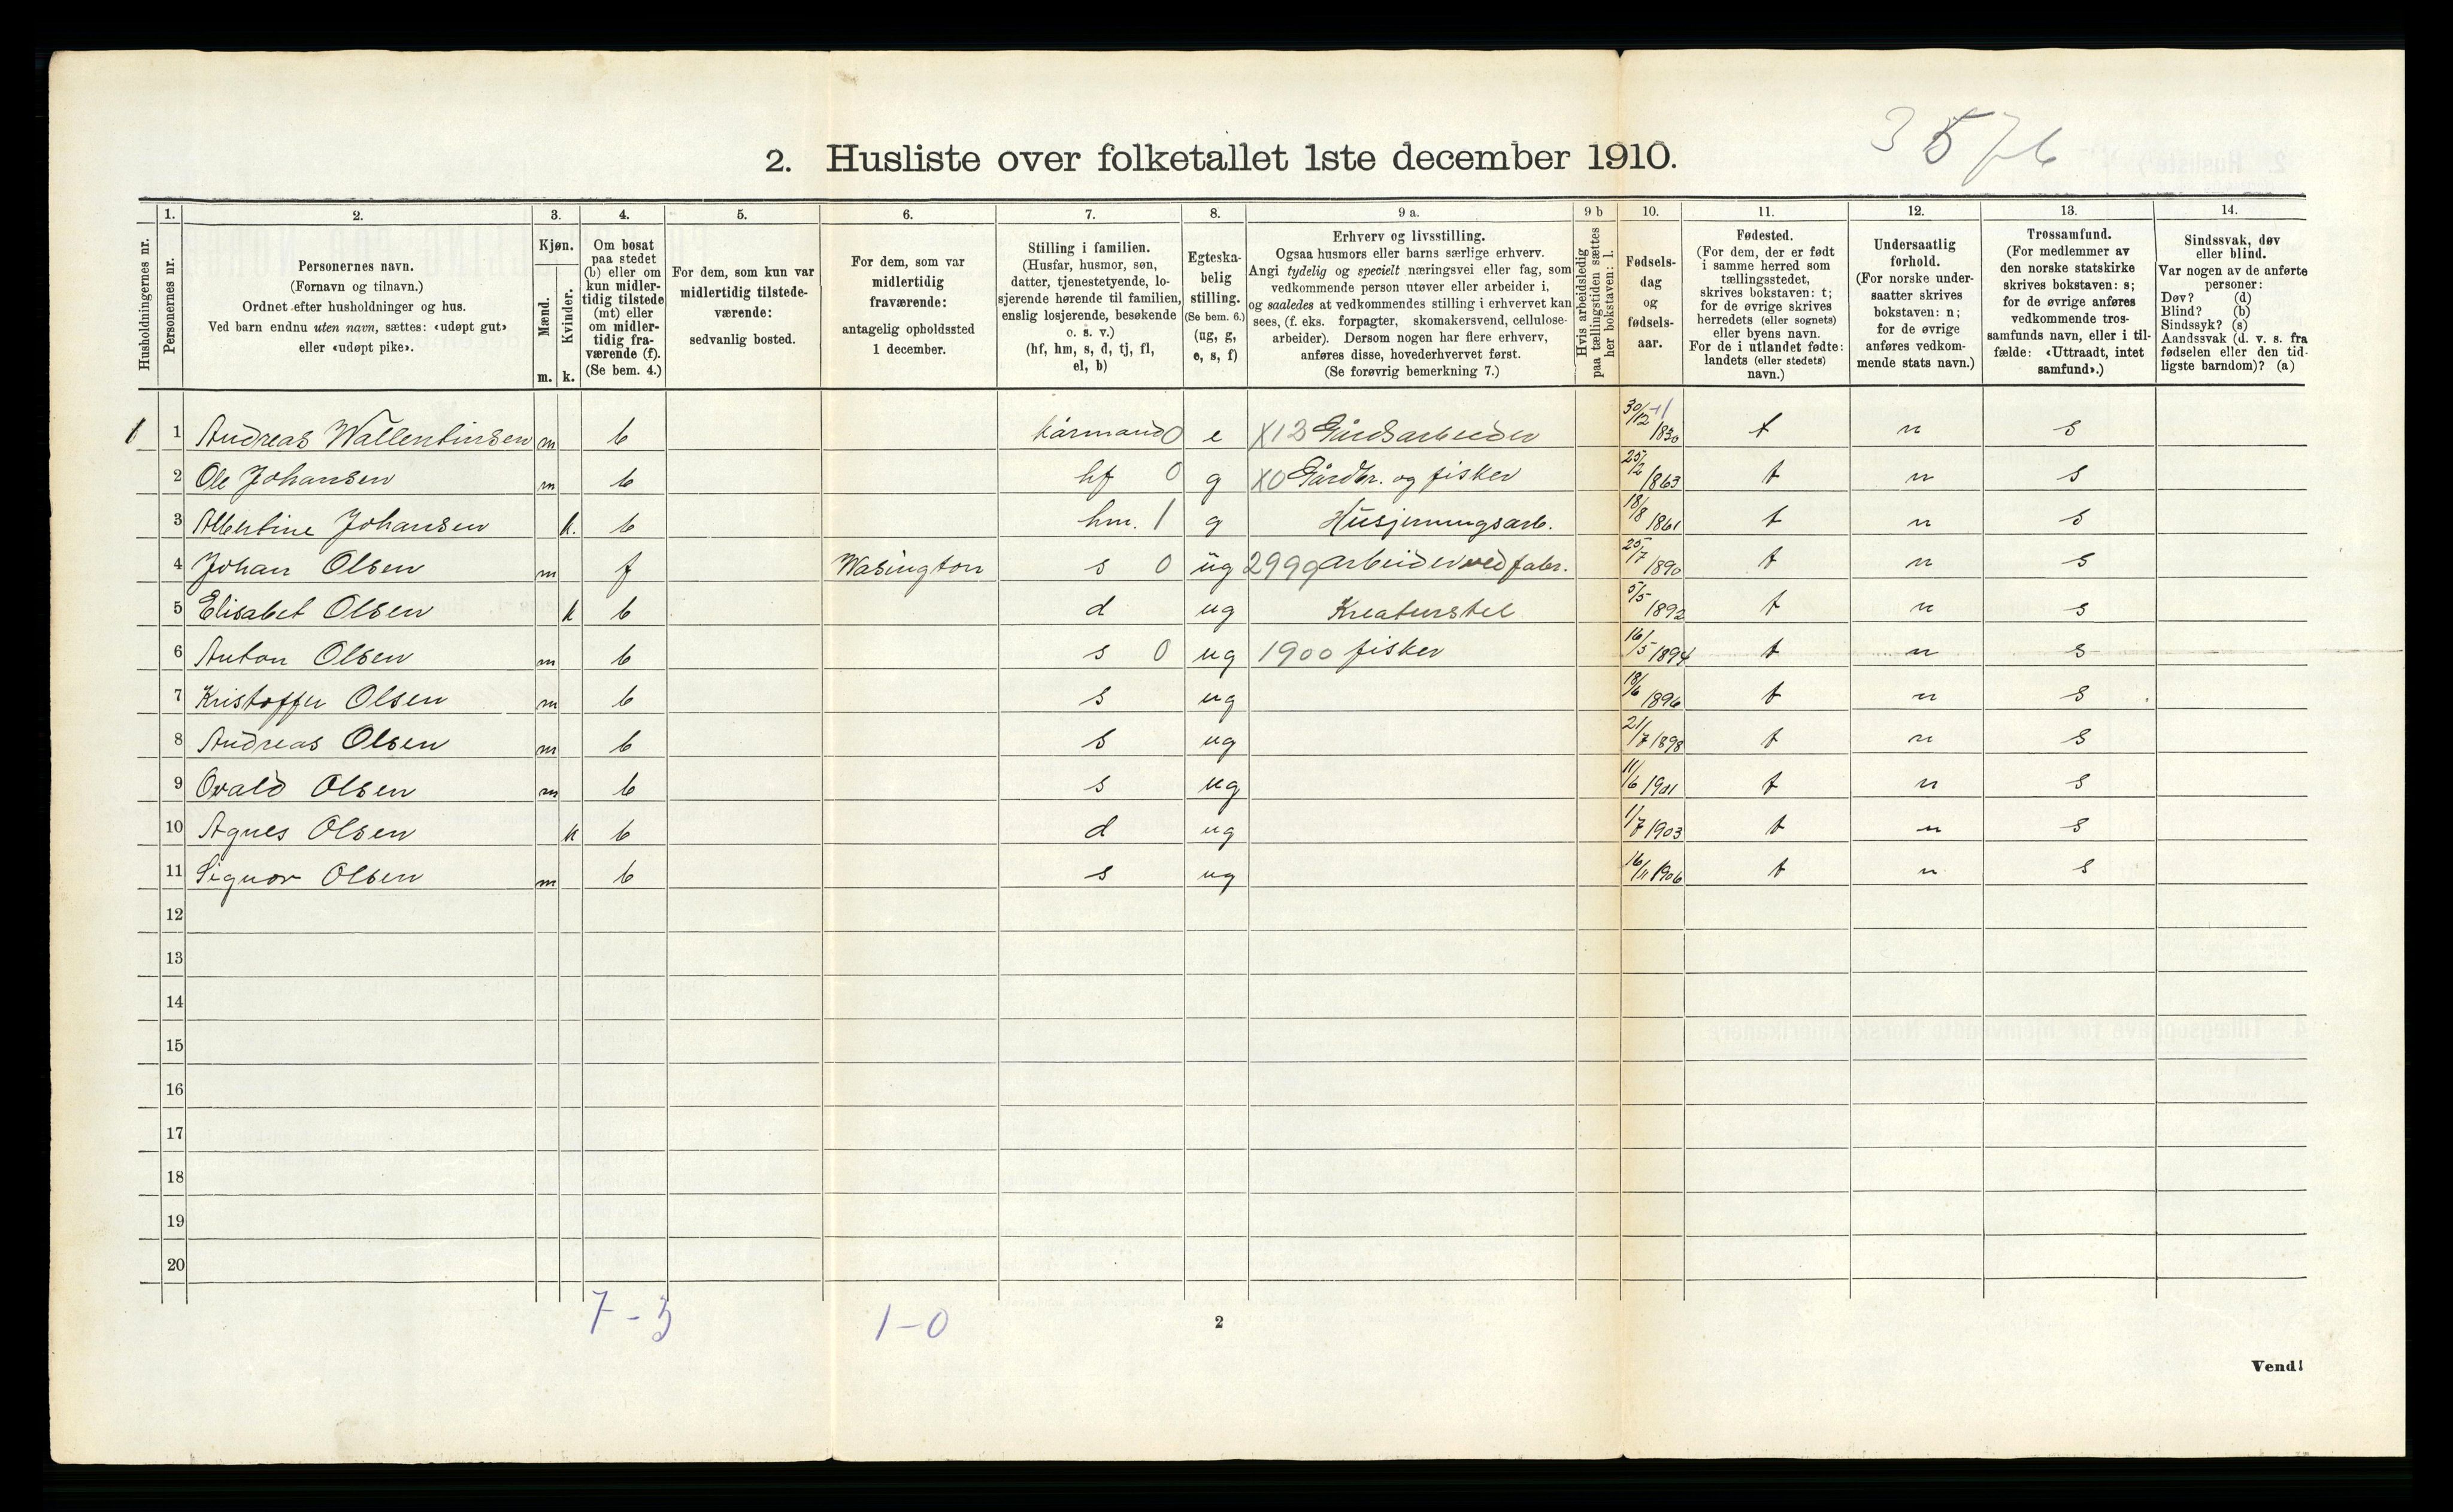 3576
2. Husliste over folketallet 1ste december 1910.
Husholdningernes nr.
1.
Personernes nr.
2.
Personernes navn.
(Fornavn og tilnavn.)
Ordnet efter husholdninger og hus.
Ved barn endnu uten navn, sættes: «udøpt gut»
eller «udøpt pike».
3.
Kjøn.
Mænd.
m.
Kvinder.
k.
4.
Om bosat
paa stedet
(b) eller om
kun midler-
tidig tilstede
(mt) eller
om midler-
tidig fra-
værende (f).
(Se bem. 4.)
5.
For dem, som kun var
midlertidig tilstede-
værende:
sedvanlig bosted.
6.
For dem, som var
midlertidig
fraværende:
antagelig opholdssted
1 december.
7.
Stilling i familien.
(Husfar, husmor, søn,
datter, tjenestetyende, lo-
sjerende hørende til familien,
enslig losjerende, besøkende
o. s. v.)
(hf, hm, s, d, tj, fl,
el, b)
8.
Egteska-
belig
stilling.
(Se bem. 6.)
(ug, g,
e, s, f)
9 a.
Erhverv og livsstilling.
Ogsaa husmors eller barns særlige erhverv.
Angi tydelig og specielt næringsvei eller fag, som
vedkommende person utøver eller arbeider i,
og saaledes at vedkommendes stilling i erhvervet kan
sees, (f. eks. forpagter, skomakersvend, cellulose-
arbeider). Dersom nogen har flere erhverv,
anføres disse, hovederhvervet først.
(Se forøvrig bemerkning 7.)
9 b
Hvis arbeidsledig
paa tællingstiden sættes
her bokstaven: l.
10.
Fødsels-
dag
og
fødsels-
aar.
11.
Fødested.
(For dem, der er født
i samme herred som
tællingsstedet,
skrives bokstaven: t;
for de øvrige skrives
herredets (eller sognets)
eller byens navn.
For de i utlandet fødte:
landets (eller stedets)
navn.)
12.
Undersaatlig
forhold.
(For norske under-
saatter skrives
bokstaven: n;
for de øvrige
anføres vedkom-
mende stats navn.)
13.
Trossamfund.
(For medlemmer av
den norske statskirke
skrives bokstaven: s;
for de øvrige anføres
vedkommende tros-
samfunds navn, eller i til-
fælde: «Uttraadt, intet
samfund».)
14.
Sindssvak, døv
eller blind.
Var nogen av de anførte
personer:
Døv? (d)
Blind? (b)
Sindssyk? (s)
Aandssvak (d. v. s. fra
fødselen eller den tid-
ligste barndom)? (a)
1 1 Andreas Wallentinsen m b kårmand 0 e X13 Gårdsarbeider 30/12 1830 t n s
2 Ole Johansen m b hf 0 g X0 Gårdbr. og fisker 25/2 1863 t n s
3 Albertine Johansen k. b hm. 1 g Husjerningsarb. 18/8 1861 t n s
4 Johan Olsen m f Wasington s 0 ug 2999 arbeider ved fabr. 25/7 1890 t n s
5 Elisabet Olsen k b d ug Kreaturstel 5/5 1892 t n s
6 Anton Olsen m b s 0 ug 1900 fisker 16/5 1894 t n s
7 Kristoffer Olsen m b s ug 18/6 1896 t n s
8 Andreas Olsen m b s ug 21/7 1898 t n s
9 Ovald Olsen m b s ug 11/6 1901 t n s
10 Agnes Olsen k b d ug 1/7 1903 t n s
11 Signor Olsen m b s ug 16/11 1906 t n s
12
13
14
15
16
17
18
19
20
7-3
1-0
2
Vend!